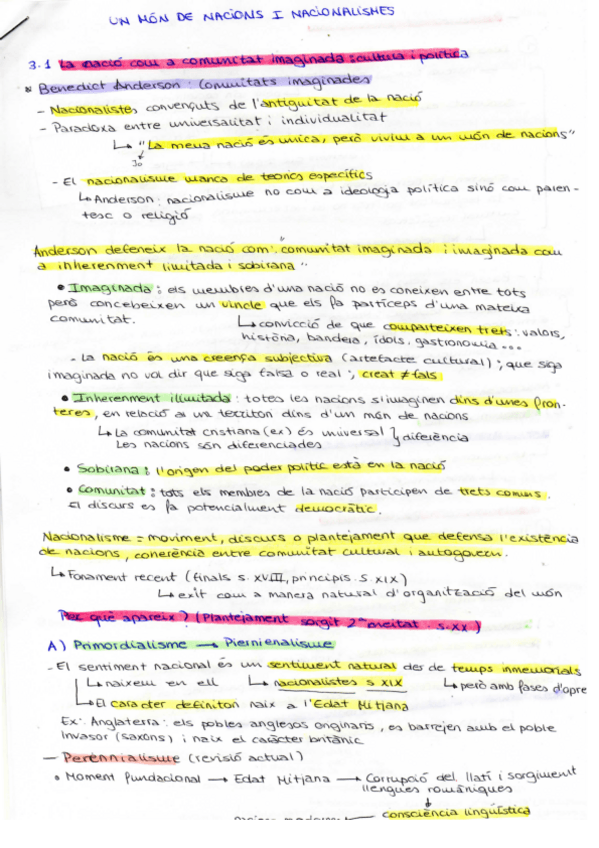 UN MÓN DE NACIONS I NACIONALISMES
3.1 La nació com a comunitat imaginada : cultura i política
* Benedict Anderson : Comunitats imaginades
- Nacionalistes convençuts de l'antiguitat de la nació
- Paradoxa entre universalitat i individualitat
↳ "La meva nació és única, però vivim a un món de nacions"
↓
Jo
- El nacionalisme manca de teorics específics
↳ Anderson : nacionalisme no com a ideologia política sinó com paren-
tesc o religió
Anderson defineix la nació com: "comunitat imaginada i imaginada com
a inherenment limitada i sobirana"
• Imaginada : els membres d'una nació no es coneixen entre tots
però concebeixen un vincle que els fa partíceps d'una mateixa
comunitat.
↳ convicció de que comparteixen trets : valors,
història, bandera, ídols, gastronomia ...
- La nació és una creença subjectiva (artefacte cultural) ; que siga
imaginada no vol dir que siga falsa o real ; creat ≠ fals
• Inherenment ilimitada : totes les nacions s'imaginen dins d'unes fron-
teres, en relació a un territori dins d'un món de nacions
↳ La comunitat cristiana (ex) és universal } diferència
Les nacions són diferenciades
• Sobirana : l'origen del poder polític està en la nació
• Comunitat : tots els membres de la nació participen de trets comuns.
El discurs es fa potencialment democràtic.
Nacionalisme = moviment, discurs o plantejament que defensa l'existència
de nacions, coherència entre comunitat cultural i autogovern.
↳ Fonament recent (finals s. XVIII, principis s. XIX)
↳ èxit com a manera natural d'organització del món
Per què apareix? (Plantejament sorgit 2ª meitat s. XX)
A) Primordialisme → Piernienalisme
- El sentiment nacional és un sentiment natural des de temps inmemorials
↳ naixem en ell ↳ nacionalistes s XIX ↳ però amb fases d'apre
↳ El caracter definitori naix a l'Edat Mitjana
Ex: Anglaterra : els pobles anglesos originaris, es barrejen amb el poble
invasor (saxons) i naix el caràcter britànic
- Perennialisme (revisió actual)
• Moment fundacional → Edat Mitjana → Corrupció del llatí i sorgiment
llengues romàniques
↓
consciència lingüística